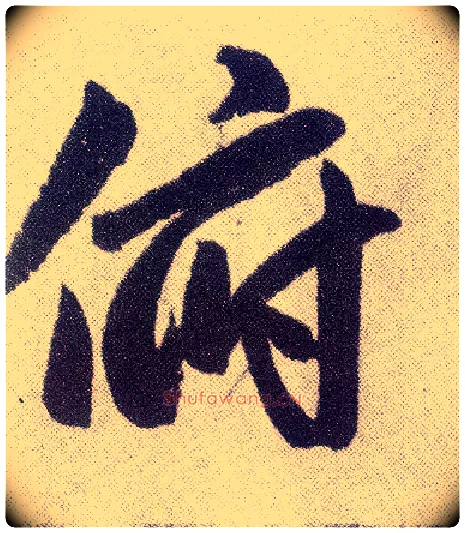 俯
Shufawang.cn